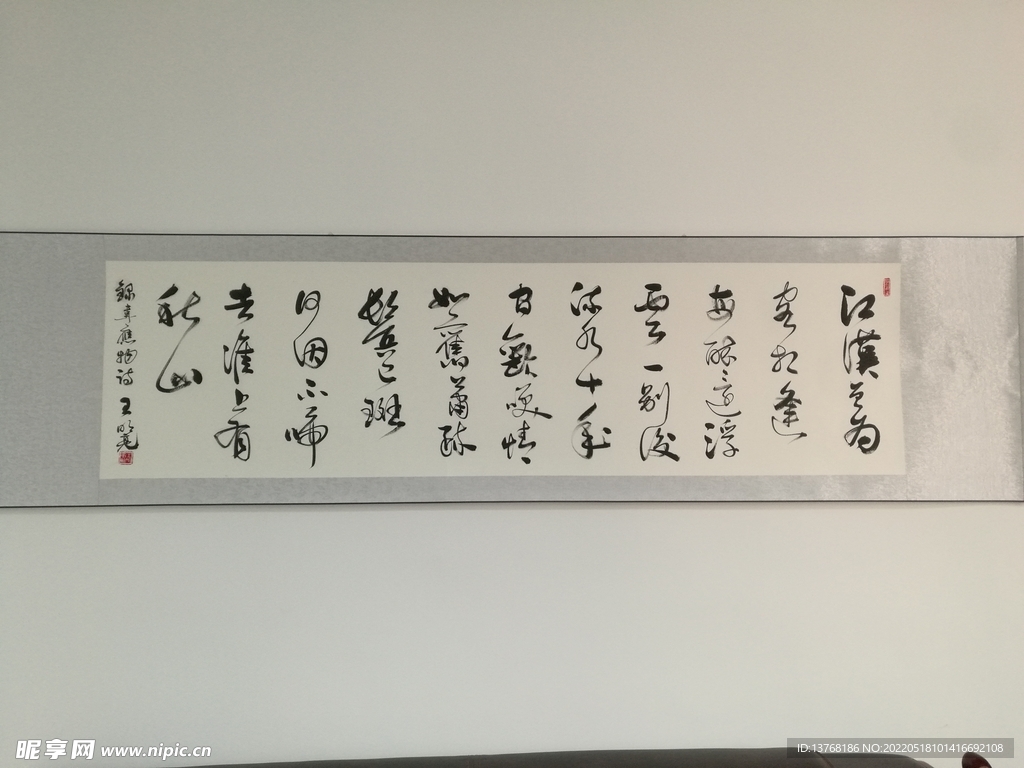 江漢曾为
客相逢
每醉還浮
雲一别後
流水十年
间歡笑情
如舊蕭疏
鬢已斑
何因不歸
去淮上有
秋山
錄韋應物诗 王
昵享网 www.nipic.cn
ID:13768186 NO:20220518101416692108